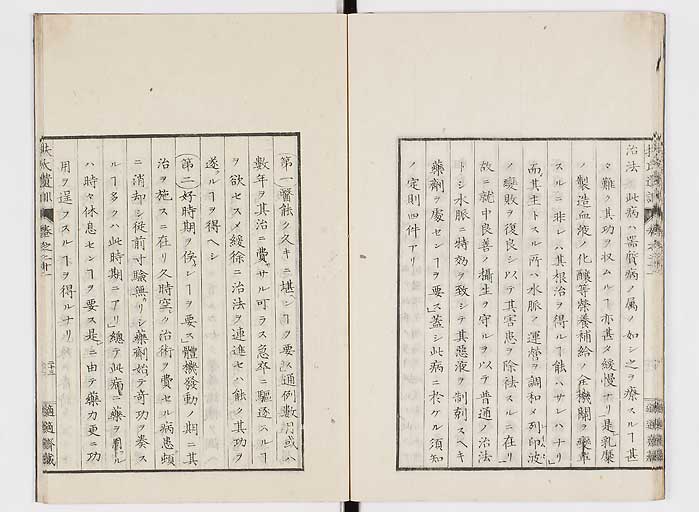 治法 此病ハ器質病ノ屬ノ如シ之ヲ療スルヿ甚
タ難ク其功ヲ収ムルヿ亦甚タ緩慢ナリ是乳糜
ノ製造血液ノ化釀等榮養補給ノ全機關ヲ
スルニ非レハ其根治ヲ得ルヿ能ハサレハナリ
而其主トスル所ハ水脈ノ運營ヲ調和メ列印波
ノ變敗ヲ復良シ以テ其害患ヲ除祛スルニ在リ
故ニ就中良善ノ攝生ヲ守ルヲ以テ普通ノ治法
トシ水脈ニ特効ヲ致シテ其惡液ヲ制剋スヘキ
藥劑ヲ處センヿヲ要ス蓋シ此病ニ於ケル須知
ノ定則四件アリ
第一醫能ク久キニ堪ンヿヲ要ス通例數月或ハ
數年ヲ其治ニ費サヽル可ラス急卒ニ驅逐スルヿ
ヲ欲セスメ緩徐ニ治法ヲ連進セハ能ク其功ヲ
遂ルヿヲ得ヘシ
第二好時期ヲ俟ンヿヲ要ス體機發動ノ期ニ其
治ヲ施スニ在リ久時空ク治術ヲ費セル病患頓
ニ消却シ從前寸驗無リシ藥劑始テ奇功ヲ奏ス
ルヿ多クハ此時期ニアリ總テ此病ニ藥ヲ用ル
ハ時々休息センヿヲ要ス是ニ由テ藥力更ニ功
用ヲ逞フスルヿヲ得ルナリ
扶氏遺訓